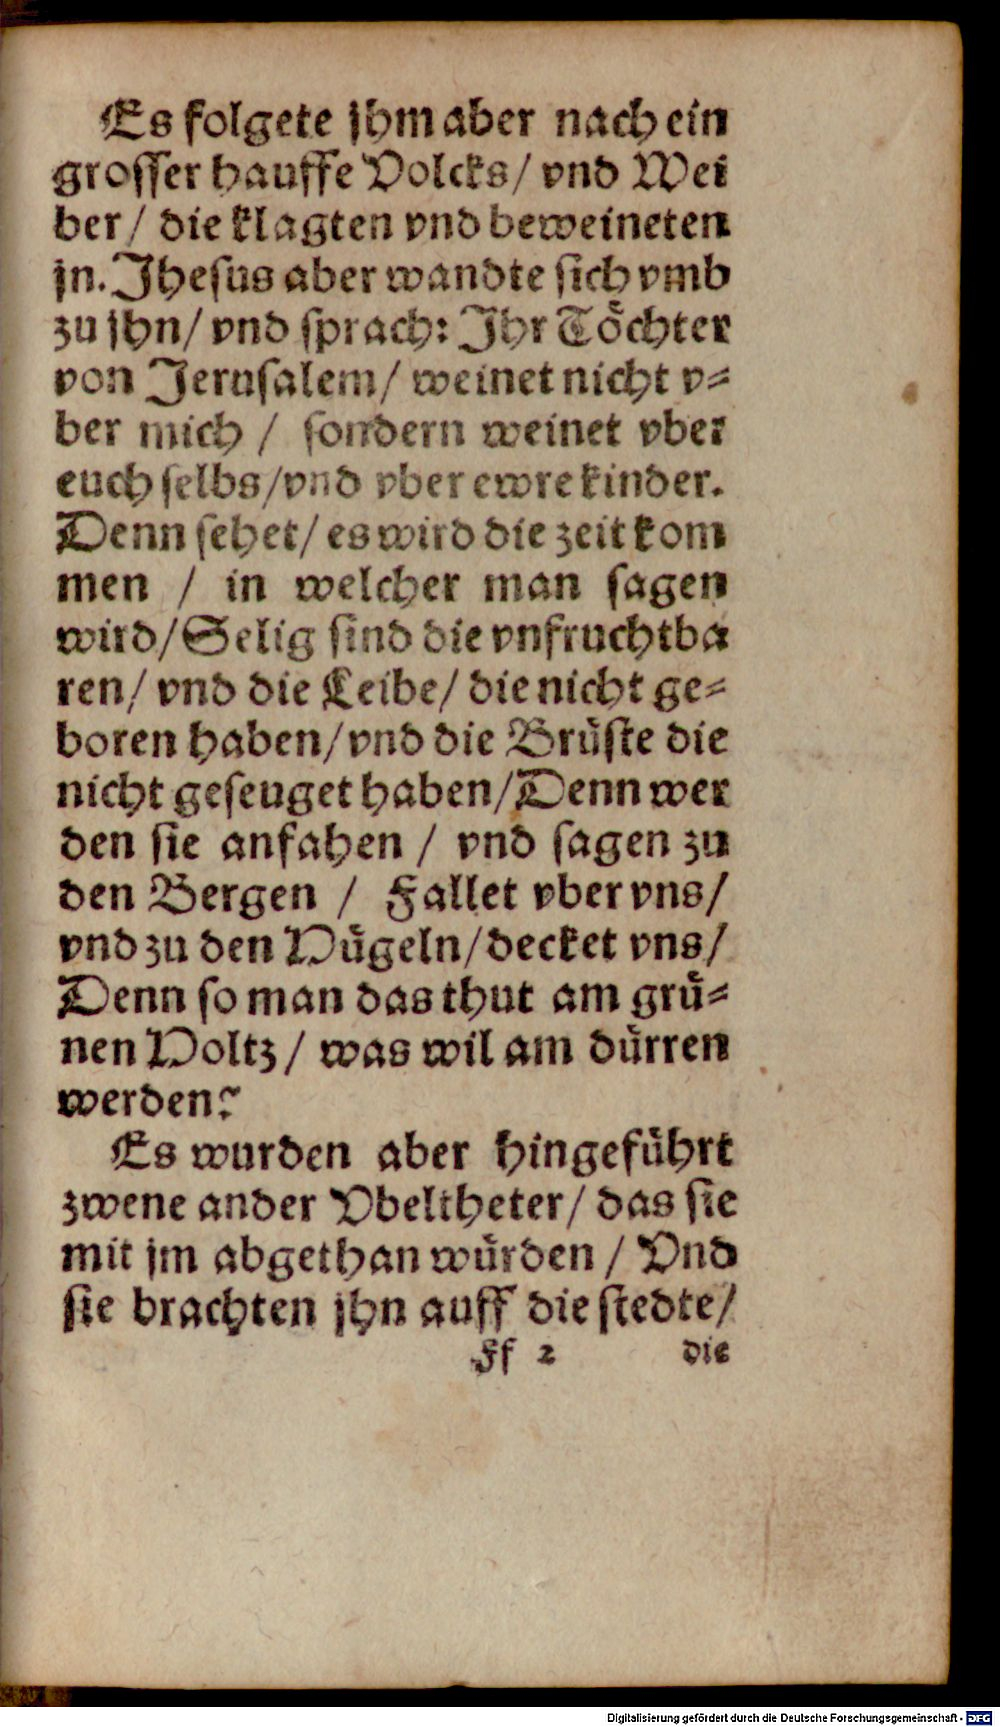 Es folgete jhm aber nach ein
grosser hauffe Volcks/ vnd Wei
ber/ die klagten vnd beweineten
jn. Jhesus aber wandte sich vmb
zu jhn/ vnd sprach: Jhr Töchter
von Jerusalem/ weinet nicht v-
ber mich / sondern weinet vber
euch selbs/vnd vber ewre kinder.
Denn sehet/ es wird die zeit kom
men / in welcher man sagen
wird/Selig sind die vnfruchtba
ren/ vnd die Leibe/ die nicht ge-
boren haben/vnd die Brüste die
nicht geseuget haben/Denn wer
den sie anfahen / vnd sagen zu
den Bergen / Fallet vber vns/
vnd zu den Hügeln/decket vns/
Denn so man das thut am grü-
nen Holtz/ was wil am dürren
werden?
Es wurden aber hingeführt
zwene ander Vbeltheter/ das sie
mit jm abgethan würden / Vnd
sie brachten jhn auff die stedte/
Ff 2 die
Digitalisierung gefördert durch die Deutsche Forschungsgemeinschaft - DFG